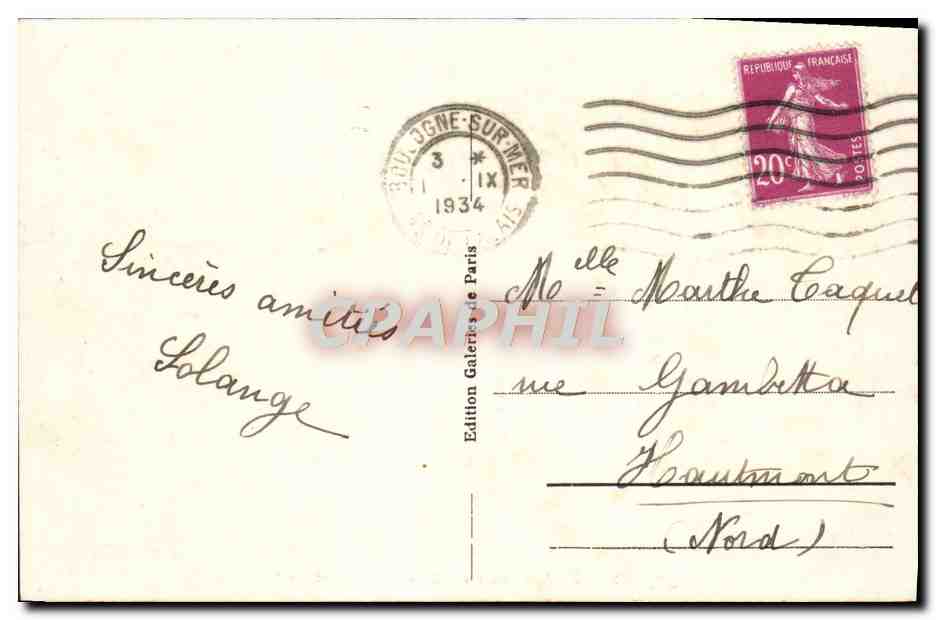 REPUBLIQUE FRANÇAISE
20c
POSTES
BOULOGNE-SUR-MER
3 *
1 · IX
1934
PAS DE CALAIS
Sincères amitiés
Solange
Edition Galeries de Paris
CPAPHIL
Melle Marthe Taquet
rue Gambetta
Hautmont
(Nord)